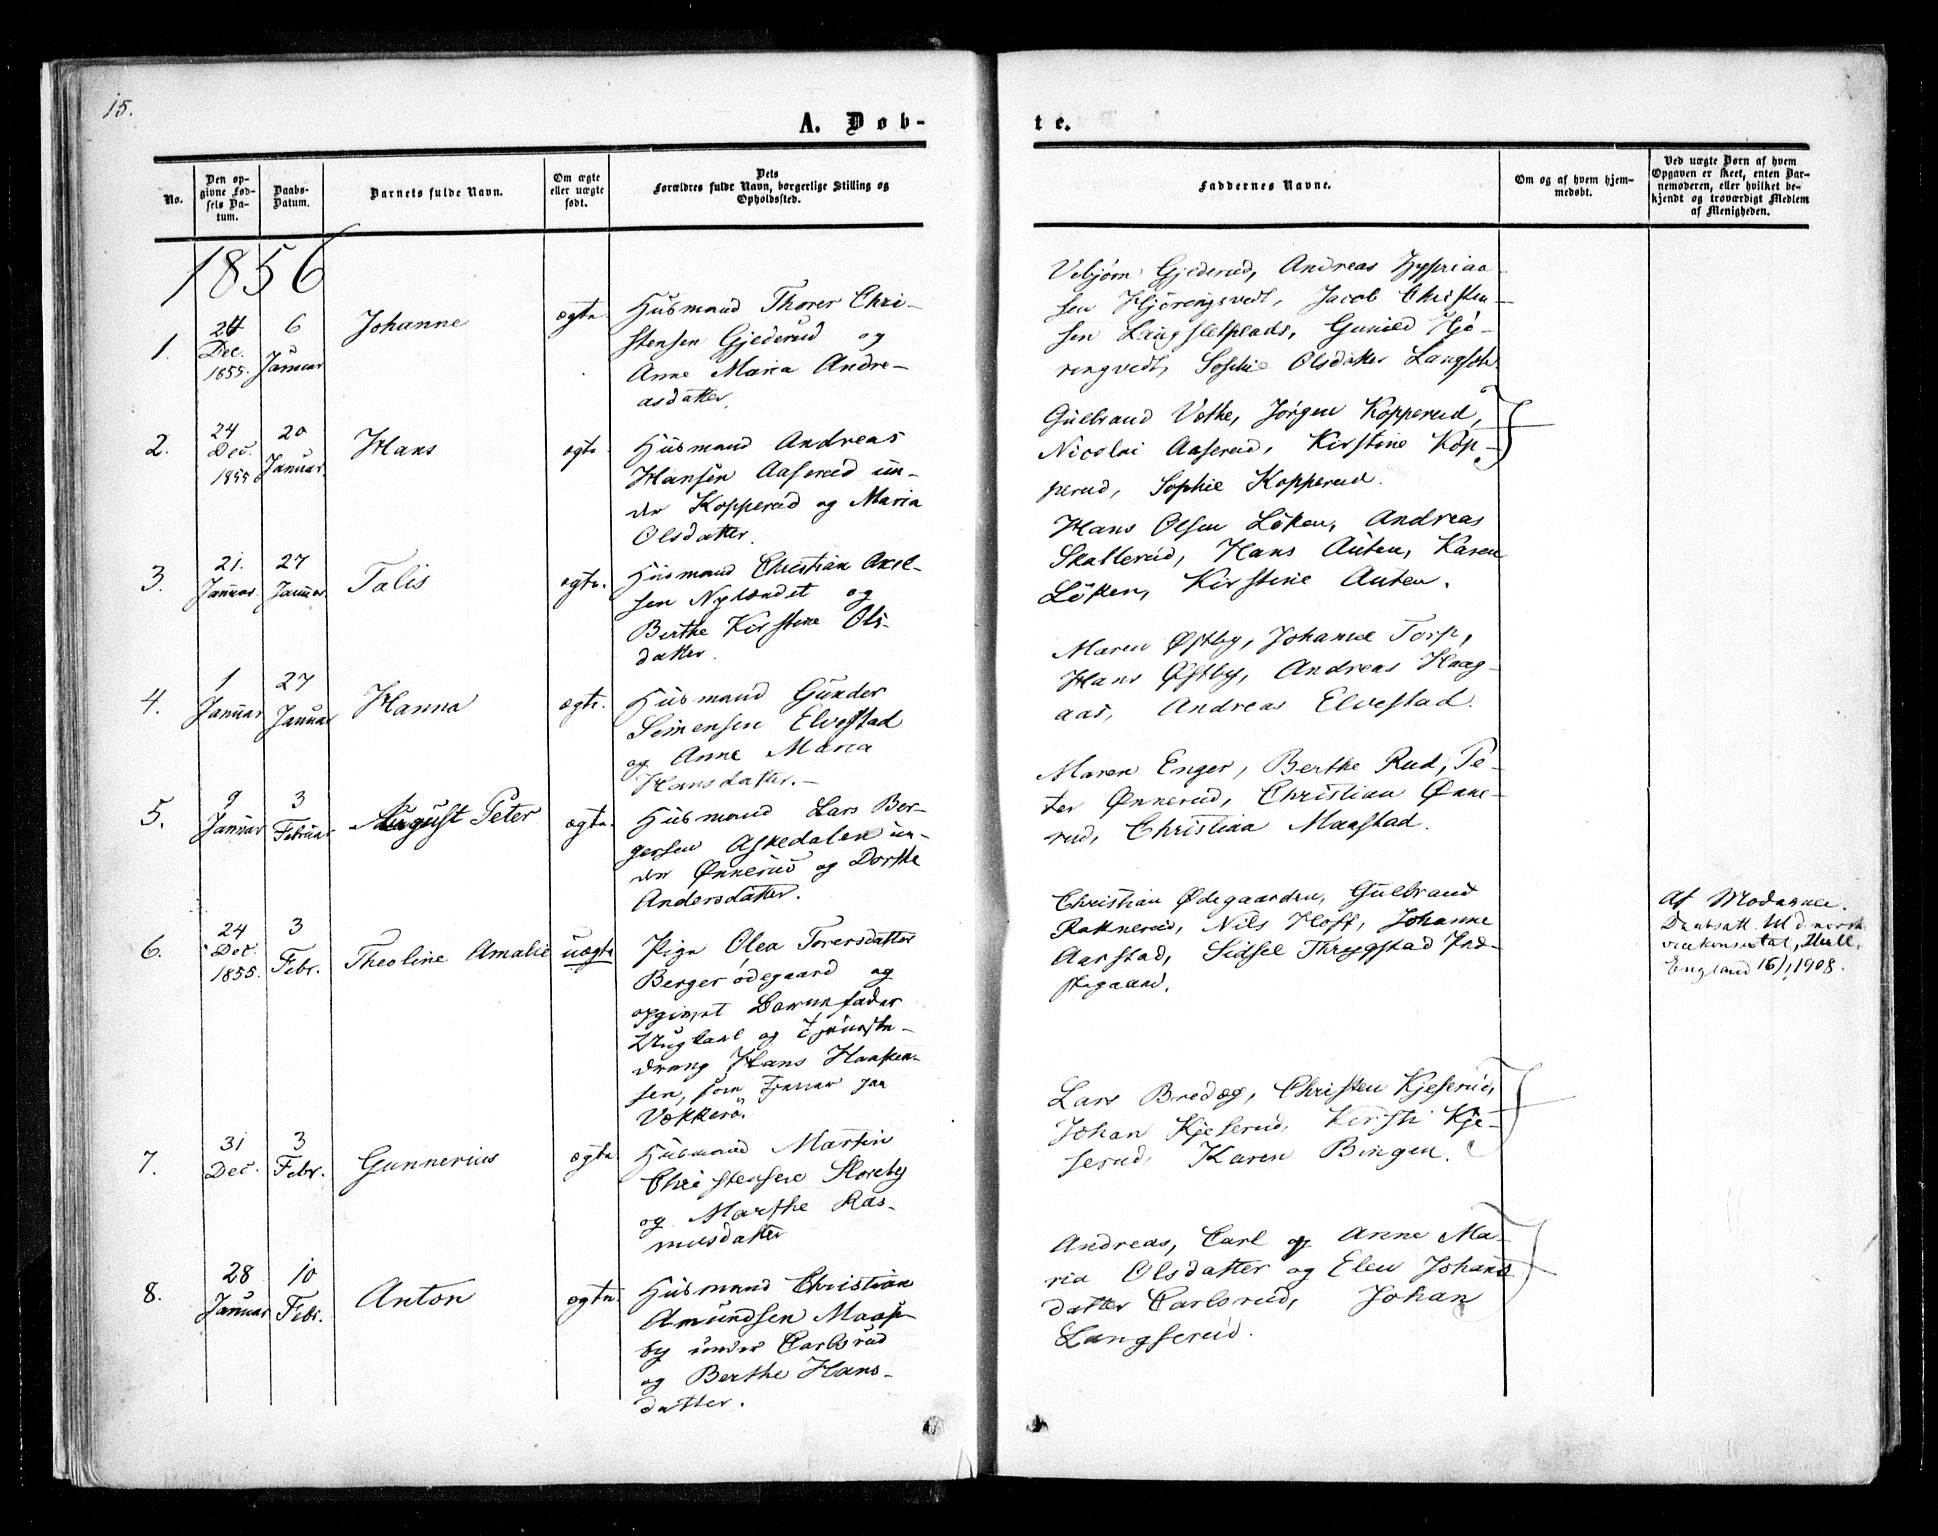 15.
A. Døb-
te.
No.
Den op-
givne Fød-
sels Da-
tum.
Daabs-
Datum.
Barnets fulde Navn.
Om ægte
eller uægte
født.
Dets
Forældres fulde Navn, borgerlige Stilling og
Opholdssted.
Faddernes Navne.
Om og af hvem hjem-
medøbt.
Ved uægte Børn af hvem
Opgaven er skeet, enten Bar-
nemoderen, eller hvilket be-
kjendt og troværdigt Medlem
af Menigheden.
1856
1.
Dec.
1855.
6
Januar
Johanne
ægte
Husmand Thorer Chri-
stensen Gjederud og
Anne Maria Andre-
asdatter.
Vebjørn Gjederud, Andreas
sen Hjøringsvedt, Jacob Christen-
sen Langsletplads, Gunild Hjø-
ringvedt, Sophie Olsdatter
2.
24
Dec.
1855
20
Januar.
Hans
ægte
Husmand Andreas
Hansen Aaserud un-
der Kopperud og Maria
Olsdatter.
Gulbrand Vethe, Jørgen Kopperud,
Nicolai Aaserud, Kirstine Kop-
perud, Sophie Kopperud.
3.
21.
Januar.
27
Januar.
Talis
ægte.
Husmand Christian Axel-
sen Nylændet og
Berthe Kirstine Ols-
datter.
Hans Olsen Løken, Andreas
Skallerud, Hans Auten, Karen
Løken, Kirstine Auten.
4.
1
Januar
27
Januar
Hanna
ægte.
Husmand Gunder
Simensen Elvestad
og Anne Maria
Hansdatter.-
Maren Østby, Johanne Torp,
Hans Østby, Andreas Haag-
aas, Andreas Elvestad.
5.
9
Januar
3
Februar
August Peter
ægte
Husmand Lars Ber-
gersen Askedalen un-
der Ønnerud og Dorthe
Andersdatter.
Maren Enger, Berthe Rud, Pe-
ter Ønnerud, Christian Ønne-
rud, Christian Maastad.
6.
24
Dec.
1855.
3
Febr.
Theoline Amalie
uægte
Pige Olea Torersdatter
Berger ødegaard og
opgivet Barnefader
Ungkarl og Tjeneste-
dreng Hans Haaken-
sen, som tjener paa
Vækkerø.
Christian Ødegaarden, Gulbrand
Raknerud, Nils Hoff, Johanne
Aarstad, Sidsel Thrygstad Præ-
stegaard.
Af Moderen.
Daabsatt. til d. norsk
vicekonsulat, Hull,
England 16/1, 1908.
7.
31
Dec.
3
Febr.
Gunnerius
ægte
Husmand Martin
Christensen Storeby
og Marthe Ras-
musdatter
Lars Bredæg, Christen Kjeserud,
Johan Kjeserud, Kirsti Kje-
serud, Karen Bingen.
8.
28
Januar
10
Febr.
Anton
ægte
Husmand Christian
Amundsen Maas-
by under Carlsrud
og Berthe Hans-
datter.
Andreas, Carl og Anne Ma-
ria Olsdatter og Elen Johans
datter Carlsrud, Johan
Langserud.